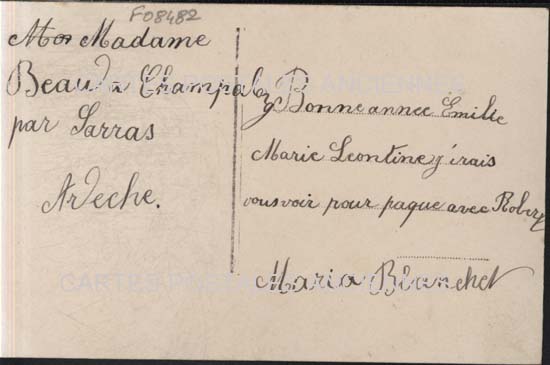 F08482
Mor Madame
Beaud à Champal
par Sarras
Ardeche.
Bonne annee Émilie
Marie Leontine y irais
vous voir pour paque avec Robert
Maria Blanchet
CARTES POSTALES ANCIENNES
CARTES POSTALES ANCIENNES